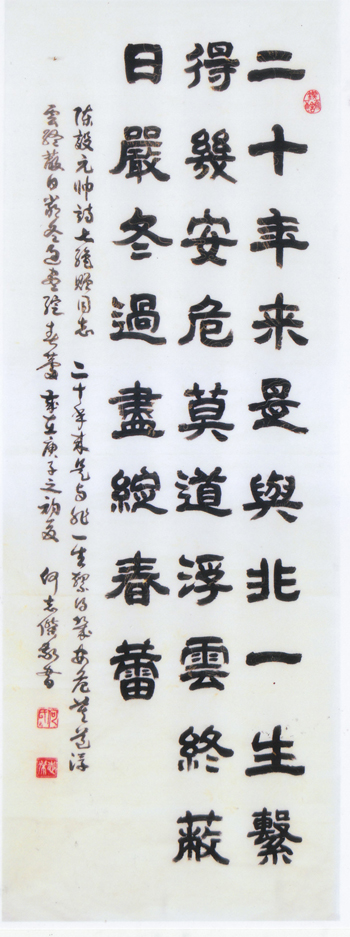 二十年来是與非一生繫
得幾安危莫道浮雲終蔽
日嚴冬過盡綻春蕾
陈毅元帅诗七绝赠同志 二十年来是与非一生系得几安危莫道浮
云终蔽日严冬过尽绽春蕾 岁在庚子之初夏 何志 书